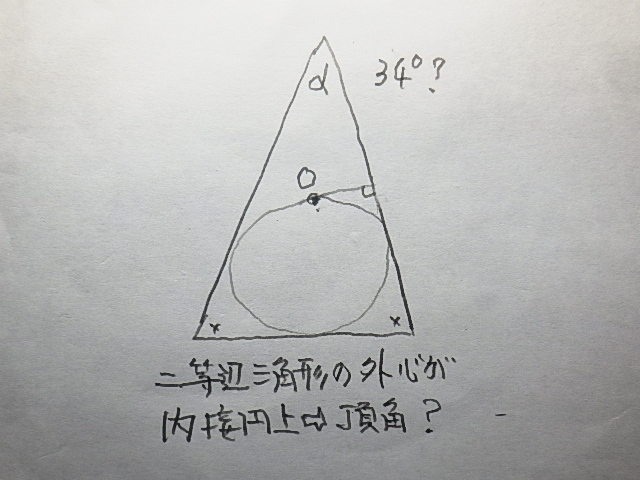 α
34°?
O
x x
二等辺三角形の外心が
内接円上⇒頂角?